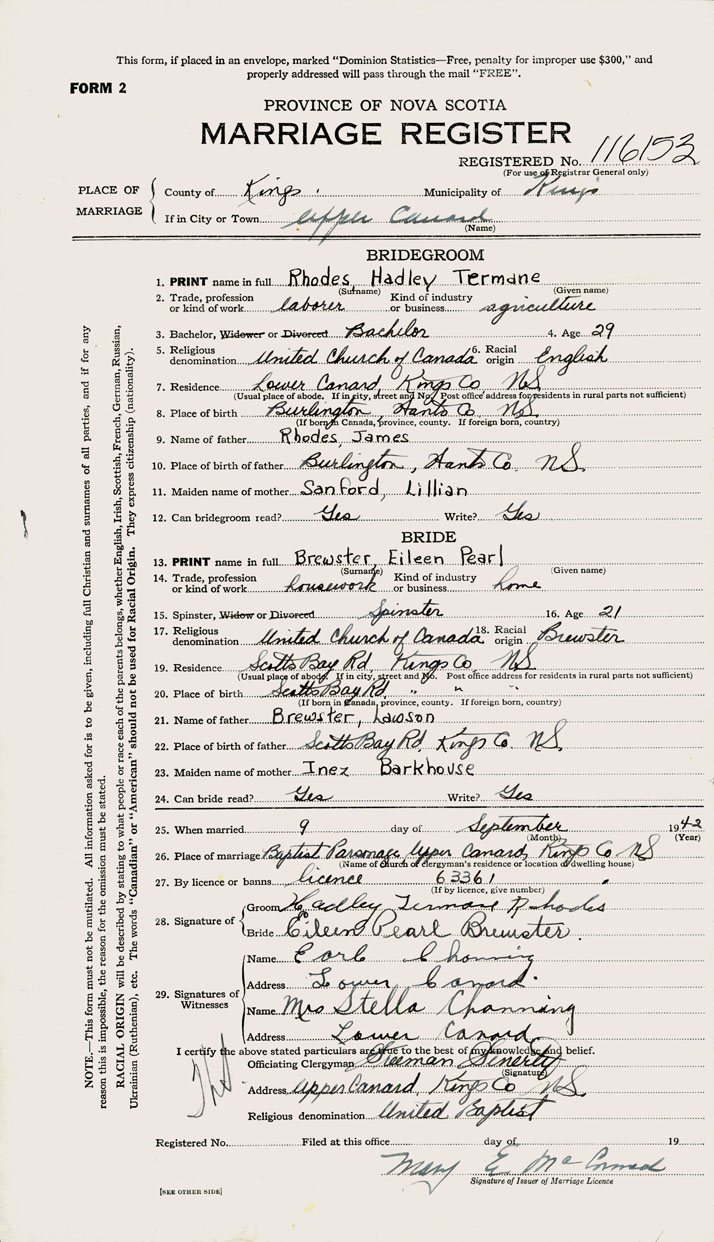 This form, if placed in an envelope, marked "Dominion Statistics—Free, penalty for improper use $300," and
properly addressed will pass through the mail "FREE".
FORM 2
PROVINCE OF NOVA SCOTIA
MARRIAGE REGISTER
REGISTERED No. 116153
(For use of Registrar General only)
PLACE OF MARRIAGE
County of Kings Municipality of Kings
If in City or Town Upper Canard
(Name)
BRIDEGROOM
1. PRINT name in full Rhodes, Hadley Termane
(Surname) (Given name)
2. Trade, profession or kind of work laborer Kind of industry or business agriculture
3. Bachelor, Widower or Divorced Bachelor 4. Age 29
5. Religious denomination United Church of Canada 6. Racial origin English
7. Residence Lower Canard, Kings Co NS
(Usual place of abode. If in city, street and No. Post office address for residents in rural parts not sufficient)
8. Place of birth Burlington, Hants Co. NS
(If born in Canada, province, county. If foreign born, country)
9. Name of father Rhodes, James
10. Place of birth of father Burlington, Hants Co. NS.
11. Maiden name of mother Sanford, Lillian
12. Can bridegroom read? Yes Write? Yes
BRIDE
13. PRINT name in full Brewster, Eileen Pearl
(Surname) (Given name)
14. Trade, profession or kind of work housework Kind of industry or business home
15. Spinster, Widow or Divorced Spinster 16. Age 21
17. Religious denomination United Church of Canada 18. Racial origin Brewster
19. Residence Scotts Bay Rd, Kings Co, NS
(Usual place of abode. If in city, street and No. Post office address for residents in rural parts not sufficient)
20. Place of birth Scotts Bay Rd, " " "
(If born in Canada, province, county. If foreign born, country)
21. Name of father Brewster, Lawson
22. Place of birth of father Scotts Bay Rd, Kings Co. NS.
23. Maiden name of mother Inez Barkhouse
24. Can bride read? Yes Write? Yes
25. When married 9 day of September 1942
(Month) (Year)
26. Place of marriage Baptist Parsonage, Upper Canard, Kings Co NS
(Name of church or clergyman's residence or location of dwelling house)
27. By licence or banns licence 63361
(If by licence, give number)
28. Signature of
Groom Hadley Termane Rhodes
Bride Eileen Pearl Brewster.
29. Signatures of Witnesses
Name Earl Channing
Address Lower Canard.
Name Mrs Stella Channing
Address Lower Canard
I certify the above stated particulars are true to the best of my knowledge and belief.
Officiating Clergyman Freeman Fenerty
(Signature)
Address Upper Canard, Kings Co NS.
Religious denomination United Baptist
Registered No. Filed at this office day of 19
Mary E. McConnad
Signature of Issuer of Marriage Licence
[SEE OTHER SIDE]
NOTE.—This form must not be mutilated. All information asked for is to be given, including full Christian and surnames of all parties, and if for any
reason this is impossible, the reason for the omission must be stated.
RACIAL ORIGIN will be described by stating to what people or race each of the parents belongs, whether English, Irish, Scottish, French, German, Russian,
Ukrainian (Ruthenian), etc. The words "Canadian" or "American" should not be used for Racial Origin. They express citizenship (nationality).